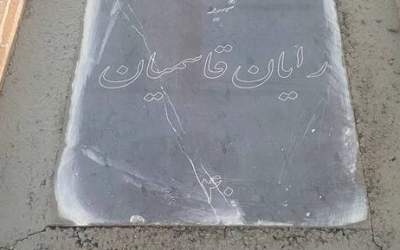 شهید
رایان قاسمیان
۴۰